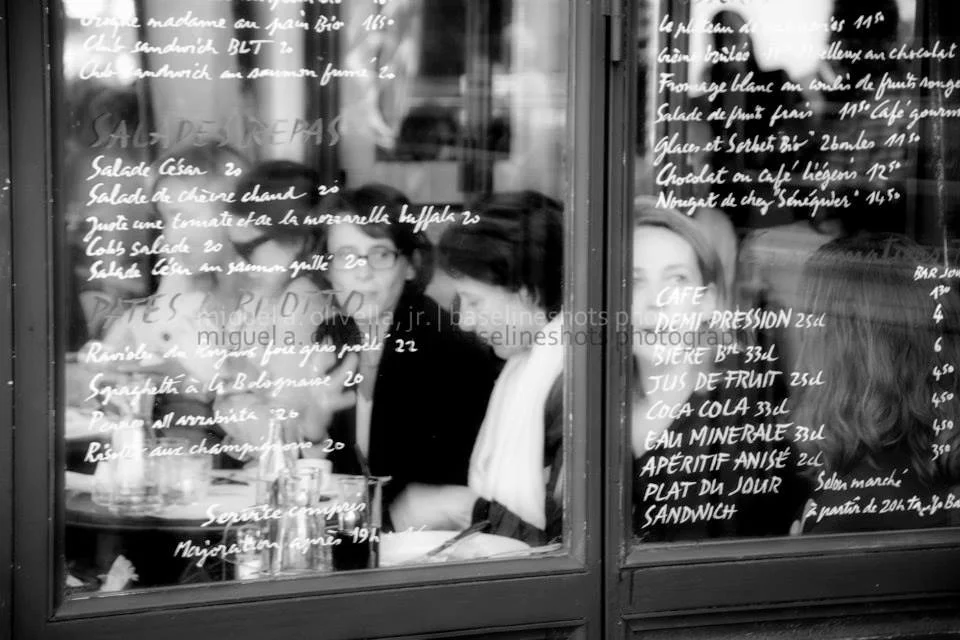 madame au pain Bio 1650
Club sandwich BLT 20
Club sandwich au saumon fumé 20
SALADES REPAS
Salade César 20
Salade de chèvre chaud 20
Juste une tomate et de la mozzarella buffala 20
Cobb salade 20
Salade César au saumon grillé 20
PATES & RISOTTO
Ravioles du foie gras poélé 22
Spaghetti à la Bolognaise 20
Penne all arrabiata 20
Risotto aux champignons 20
Service compris
Majoration après 19h
Le plateau de 11 50
Crème brûlée moelleux au chocolat
Fromage blanc au coulis de fruits rouge
Salade de fruit frais 11 50 Café gourm
Glaces et Sorbet Bio 2 boules 11 50
Chocolat ou café liégeois 12 50
Nougat de chez "Sénéquier" 14,50
BAR JOU
CAFE 130
DEMI PRESSION 25cl 4
BIERE Btl 33cl 6
JUS DE FRUIT 25cl 450
COCA COLA 33cl 450
EAU MINERALE 33cl 450
APÉRITIF ANISÉ 2cl 350
PLAT DU JOUR Selon marché
SANDWICH à partir de 20h
miguel a. olivella, jr. baselineshots photography